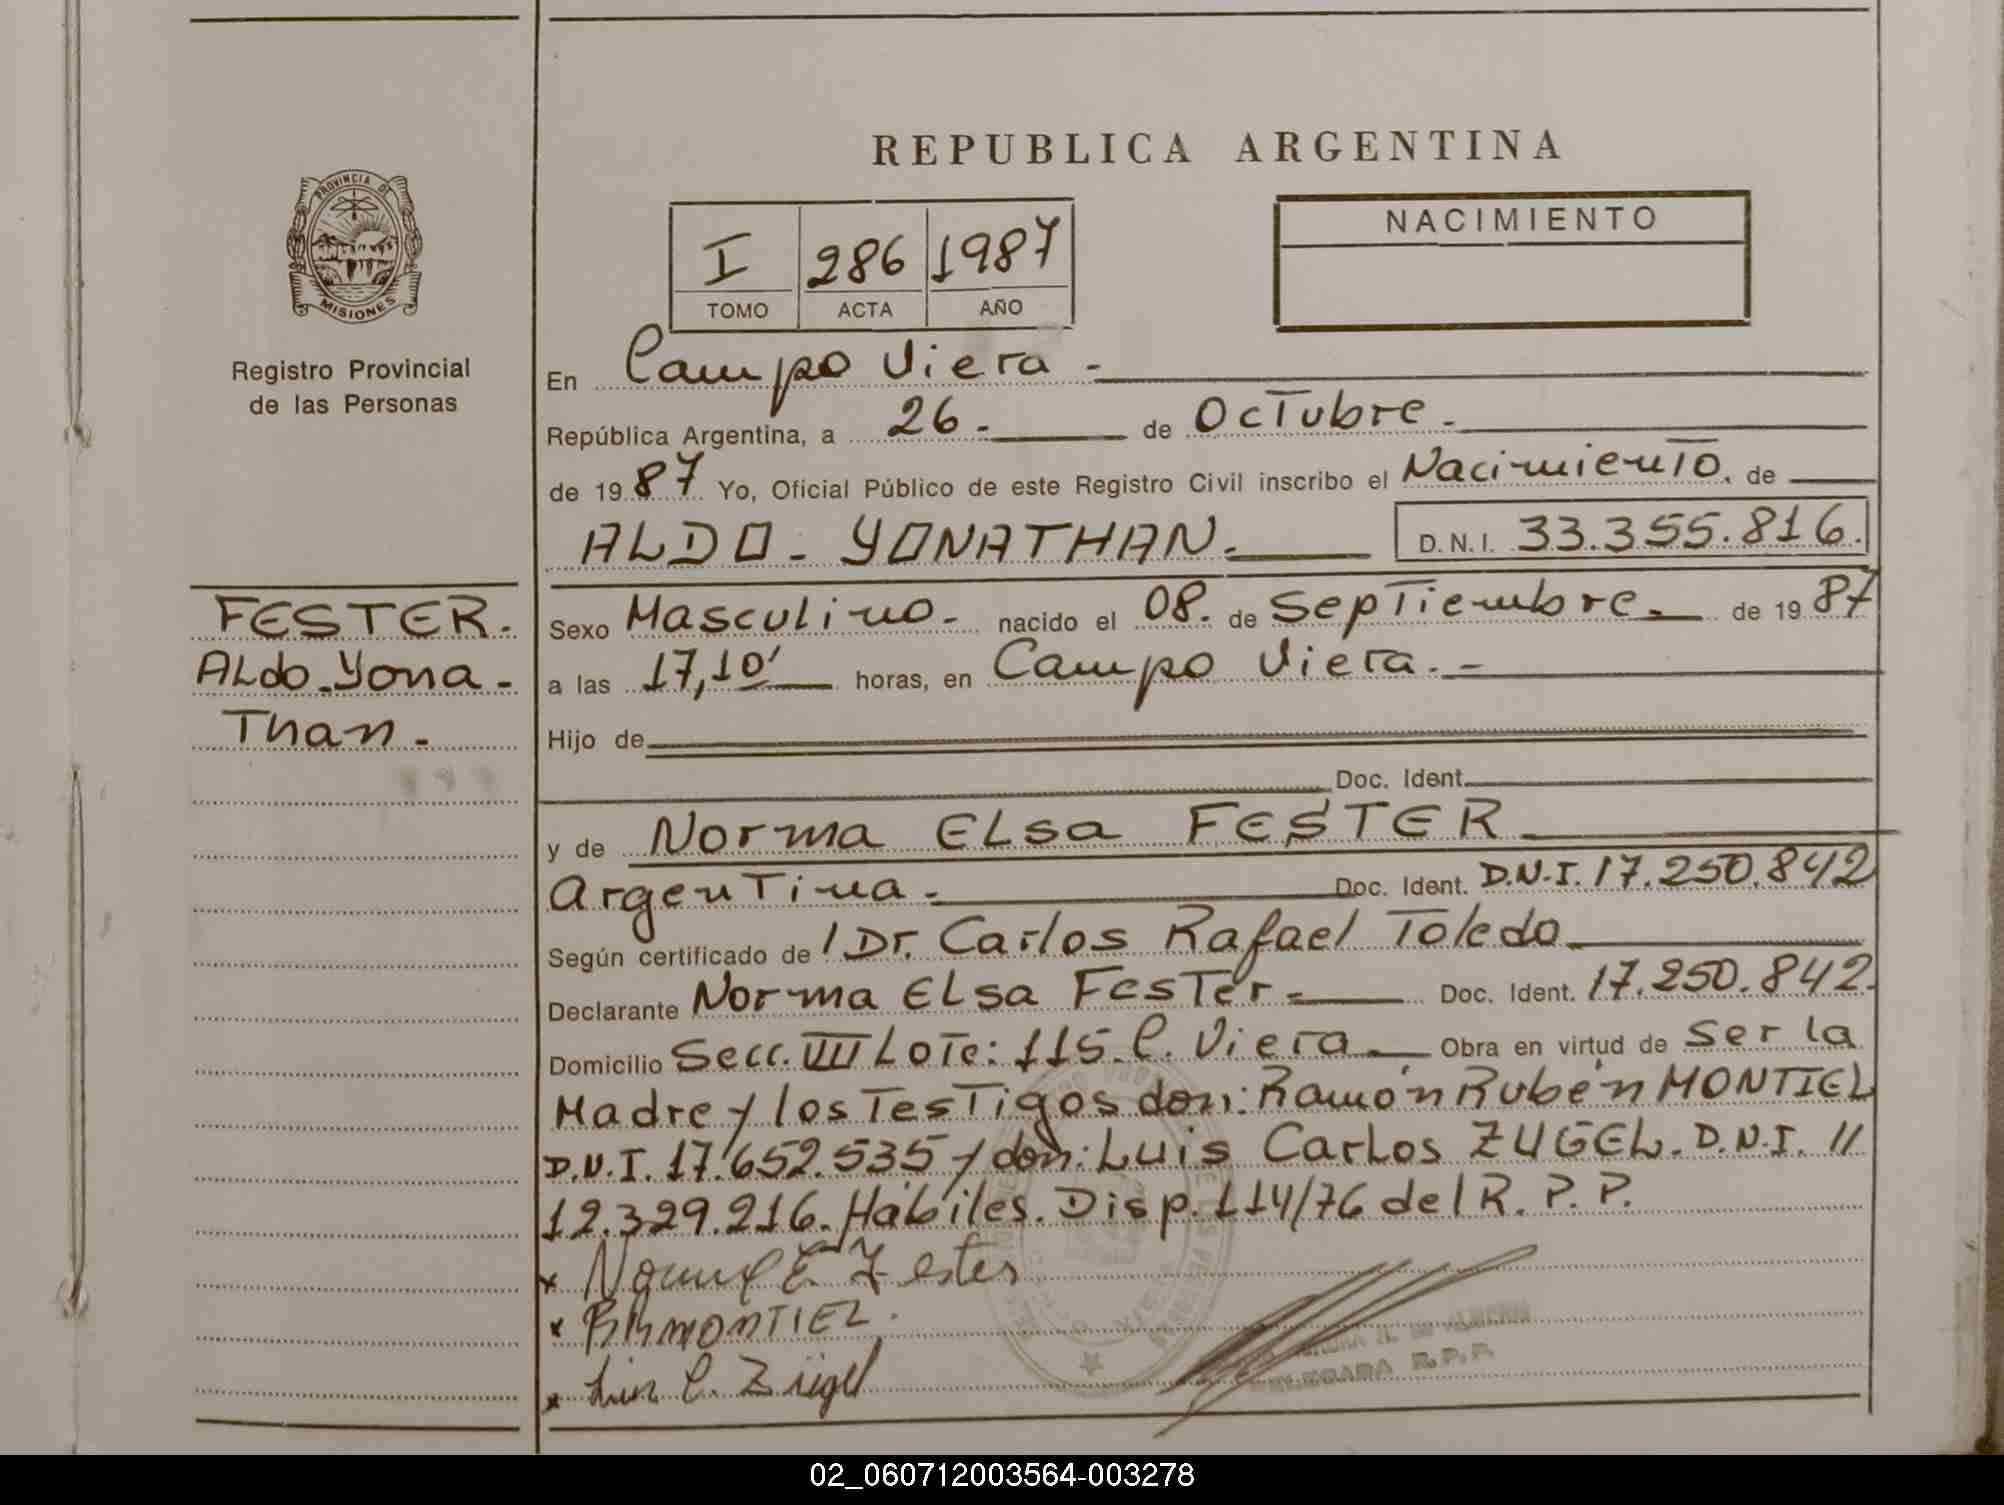 REPUBLICA ARGENTINA
PROVINCIA DE
MISIONES
Registro Provincial
de las Personas
FESTER.
ALdo-Yona-
Than.-
NACIMIENTO
I 286 1987
TOMO ACTA AÑO
En Campo Viera -
República Argentina, a 26.- de Octubre.
de 1987 Yo, Oficial Público de este Registro Civil inscribo el Nacimiento. de
ALDO - YONATHAN. D.N.I. 33.355.816.
Sexo Masculino.- nacido el 08. de Septiembre.- de 1987
a las 17,10' horas, en Campo Viera.-
Hijo de
Doc. Ident.
y de Norma ELsa FESTER
Argentina.- Doc. Ident. D.N.I. 17.250.842
Según certificado de / Dr. Carlos Rafael Toledo
Declarante Norma ELsa Fester.- Doc. Ident. 17.250.842.
Domicilio Secc. VIII Lote: 115. C. Viera Obra en virtud de Ser la
Madre y los Testigos don: Ramón Rubén MONTIEL
D.N.I. 17.652.535 y don: Luis Carlos ZUGEL. D.N.I. //
12.329.216. Hábiles. Disp. 114/76 del R.P.P.
x Norma E. Fester
x RRMONTIEL.
x Luis C. Zügel
DELEGADA R.P.P.
02_060712003564-003278